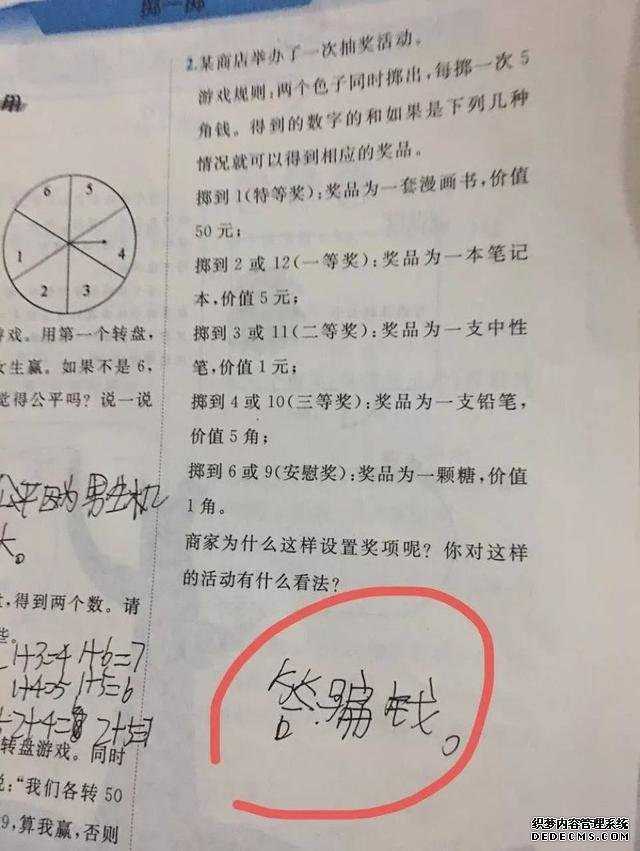 掷一掷
用
6
5
1
4
2
3
游戏。用第一个转盘，
女生赢。如果不是 6，
觉得公平吗？说一说
公平因为男生机
大。
，得到两个数。请
些。
1+3=4 1+6=7
1+4=5 1+5=6
2+4= 2+5=7
转盘游戏。同时
说："我们各转 50
9，算我赢，否则
2.某商店举办了一次抽奖活动。
游戏规则：两个色子同时掷出，每掷一次 5
角钱。得到的数字的和如果是下列几种
情况就可以得到相应的奖品。
掷到 1（特等奖）：奖品为一套漫画书，价值
50 元；
掷到 2 或 12（一等奖）：奖品为一本笔记
本，价值 5 元；
掷到 3 或 11（二等奖）：奖品为一支中性
笔，价值 1 元；
掷到 4 或 10（三等奖）：奖品为一支铅笔，
价值 5 角；
掷到 6 或 9（安慰奖）：奖品为一颗糖，价值
1 角。
商家为什么这样设置奖项呢？你对这样
的活动有什么看法？
答：骗钱。
织梦内容管理系统
DEDECMS.COM